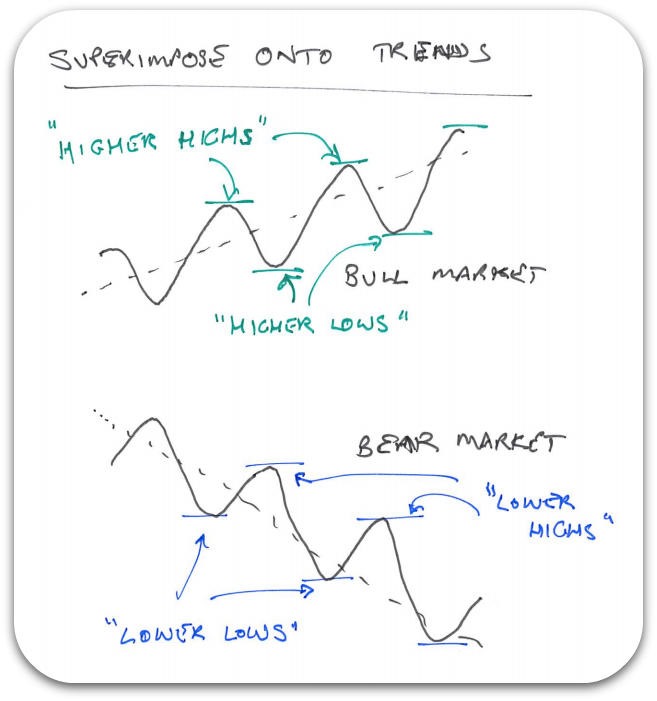 SUPERIMPOSE ONTO TRENDS
"HIGHER HIGHS"
BULL MARKET
"HIGHER LOWS"
BEAR MARKET
"LOWER
HIGHS"
"LOWER LOWS"